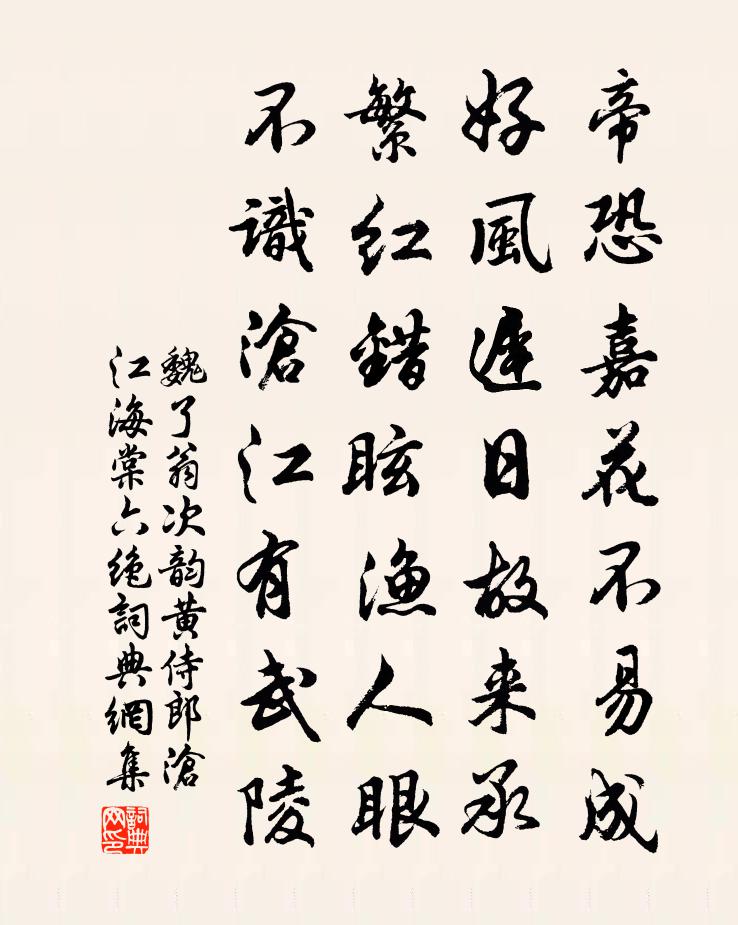 帝恐嘉花不易成
好風遲日故来承
繁红錯眩漁人眼
不識滄江有武陵
魏了翁次韵黄侍郎滄
江海棠六絶詞典網集
詞典
网印